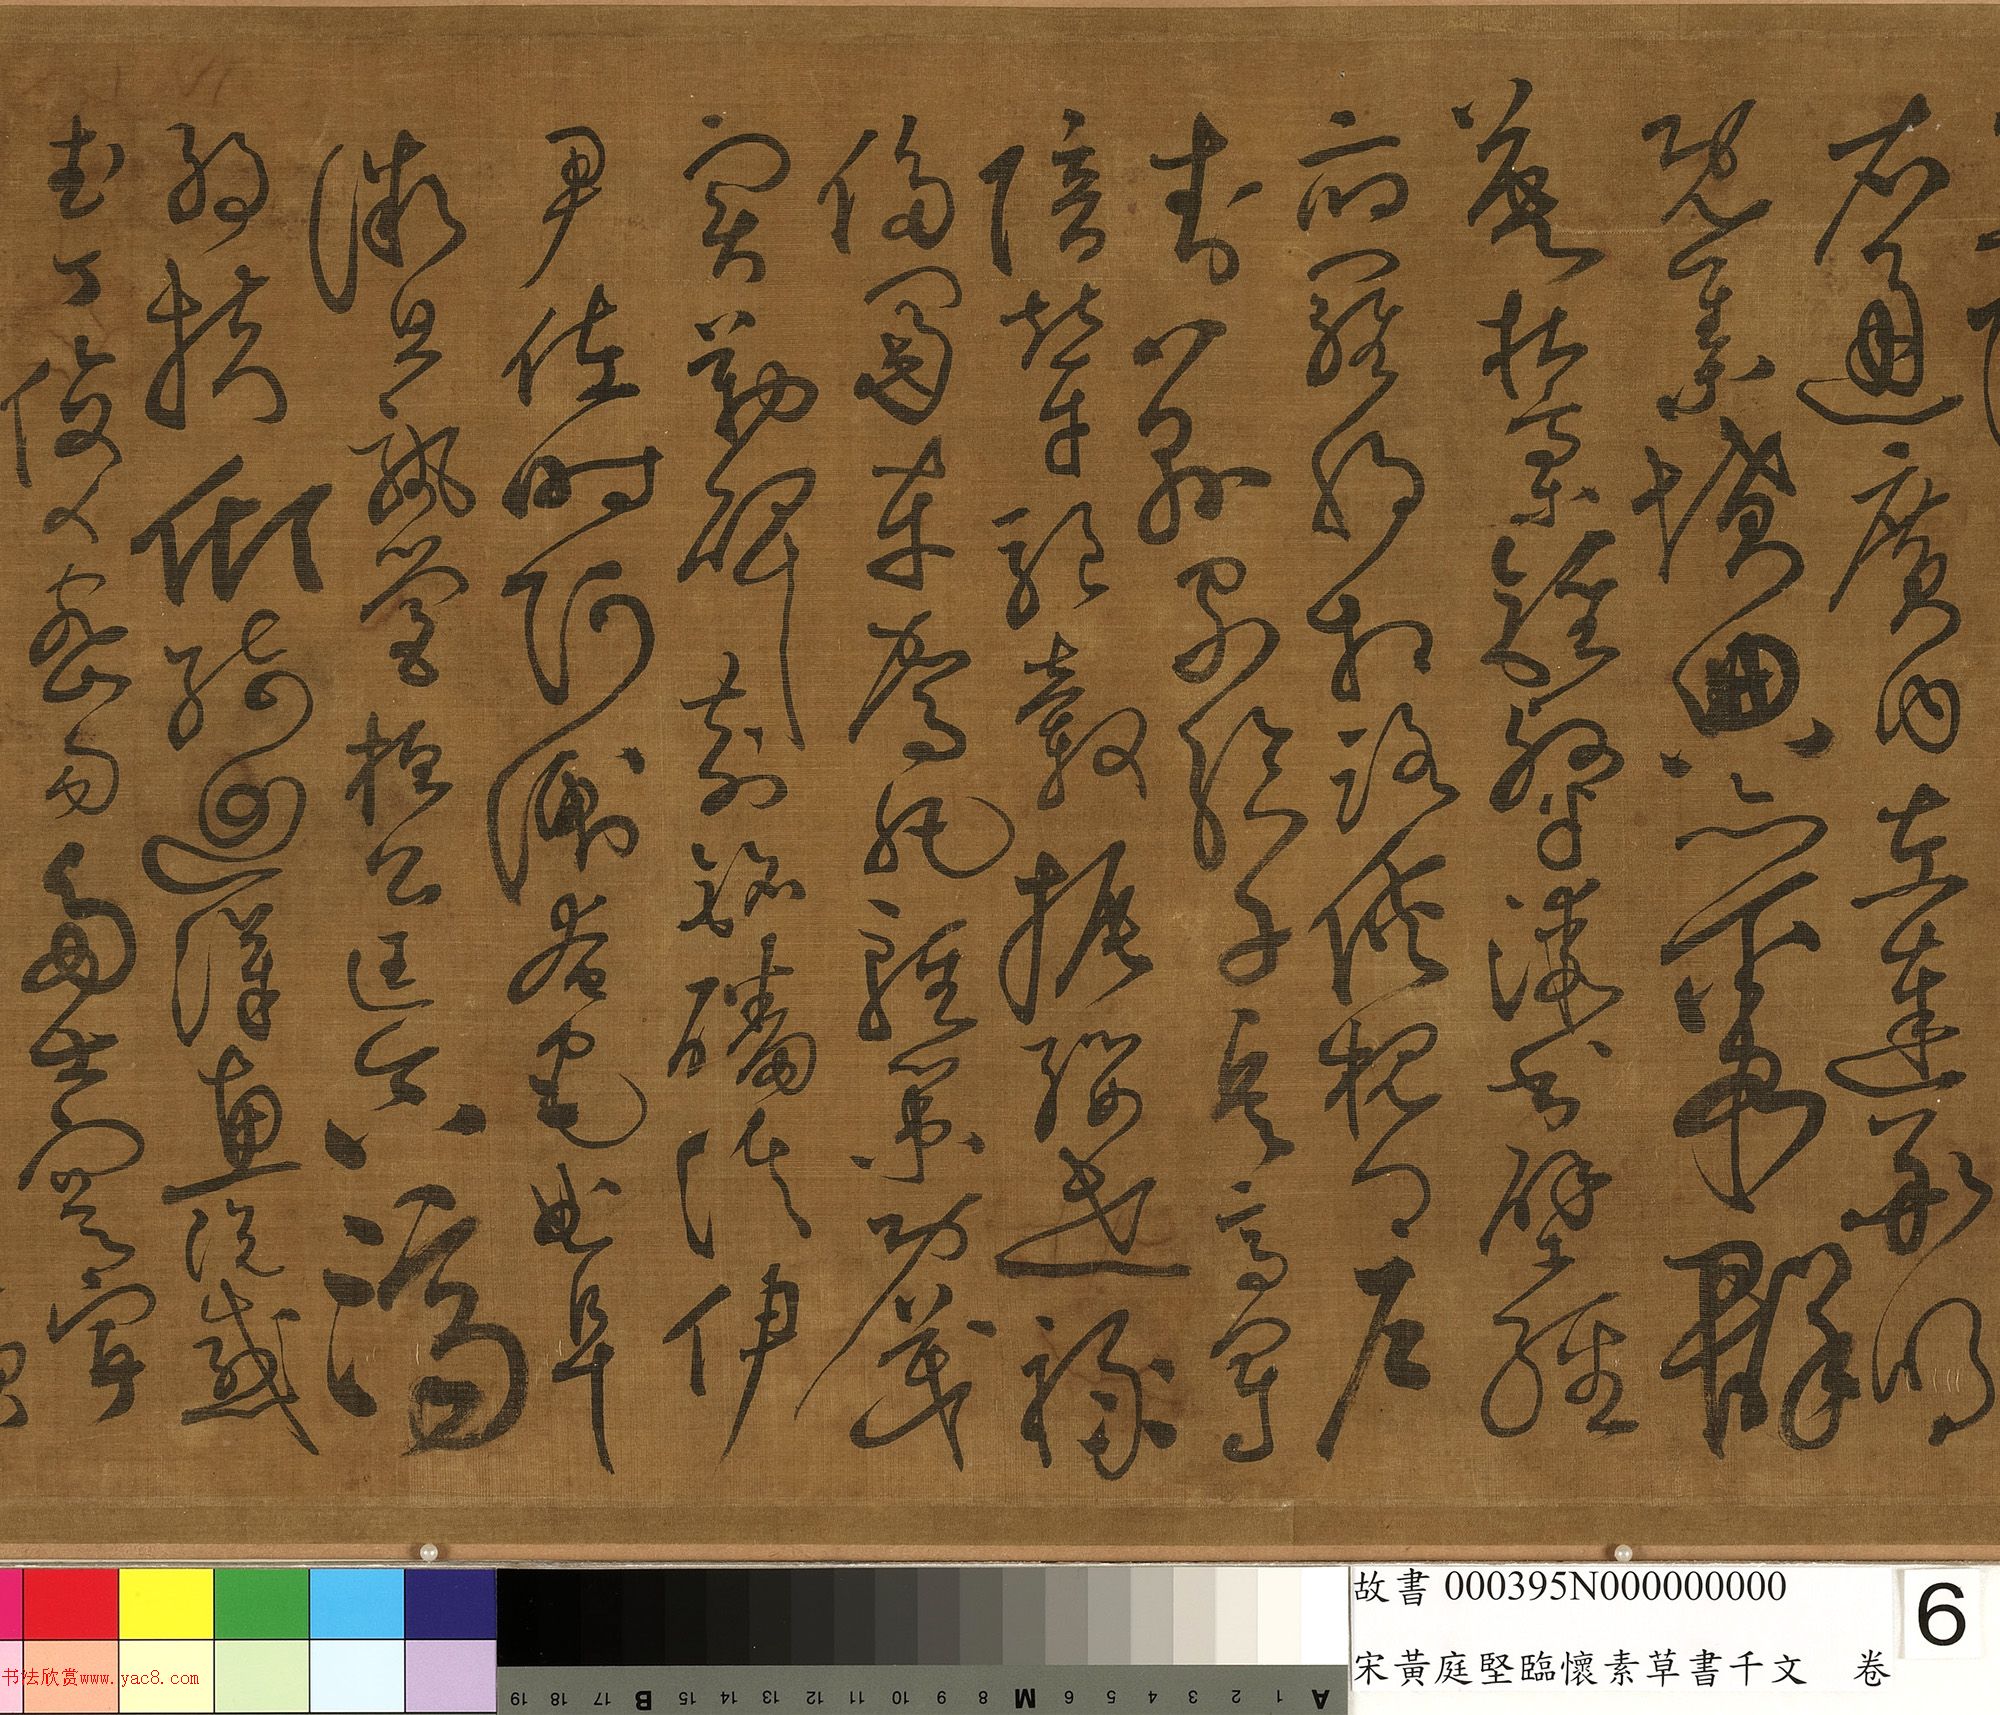 右通廣內左達承明
既集墳典亦聚群
英杜稿鍾隸漆書壁經
府羅將相路俠槐卿戶
封八縣家給千兵高冠
陪輦驅轂振纓世祿
侈富車駕肥輕策功茂
實勒碑刻銘磻溪伊
尹佐時阿衡奄宅曲阜
微旦孰營桓公匡合濟
弱扶傾綺迴漢惠說感
武丁俊乂密勿多士寔寧
故書 000395N000000000
宋黃庭堅臨懷素草書千文 卷
6
书法欣赏www.yac8.com
A 1 2 3 4 5 6 M 8 9 10 11 12 13 14 15 B 17 18 19